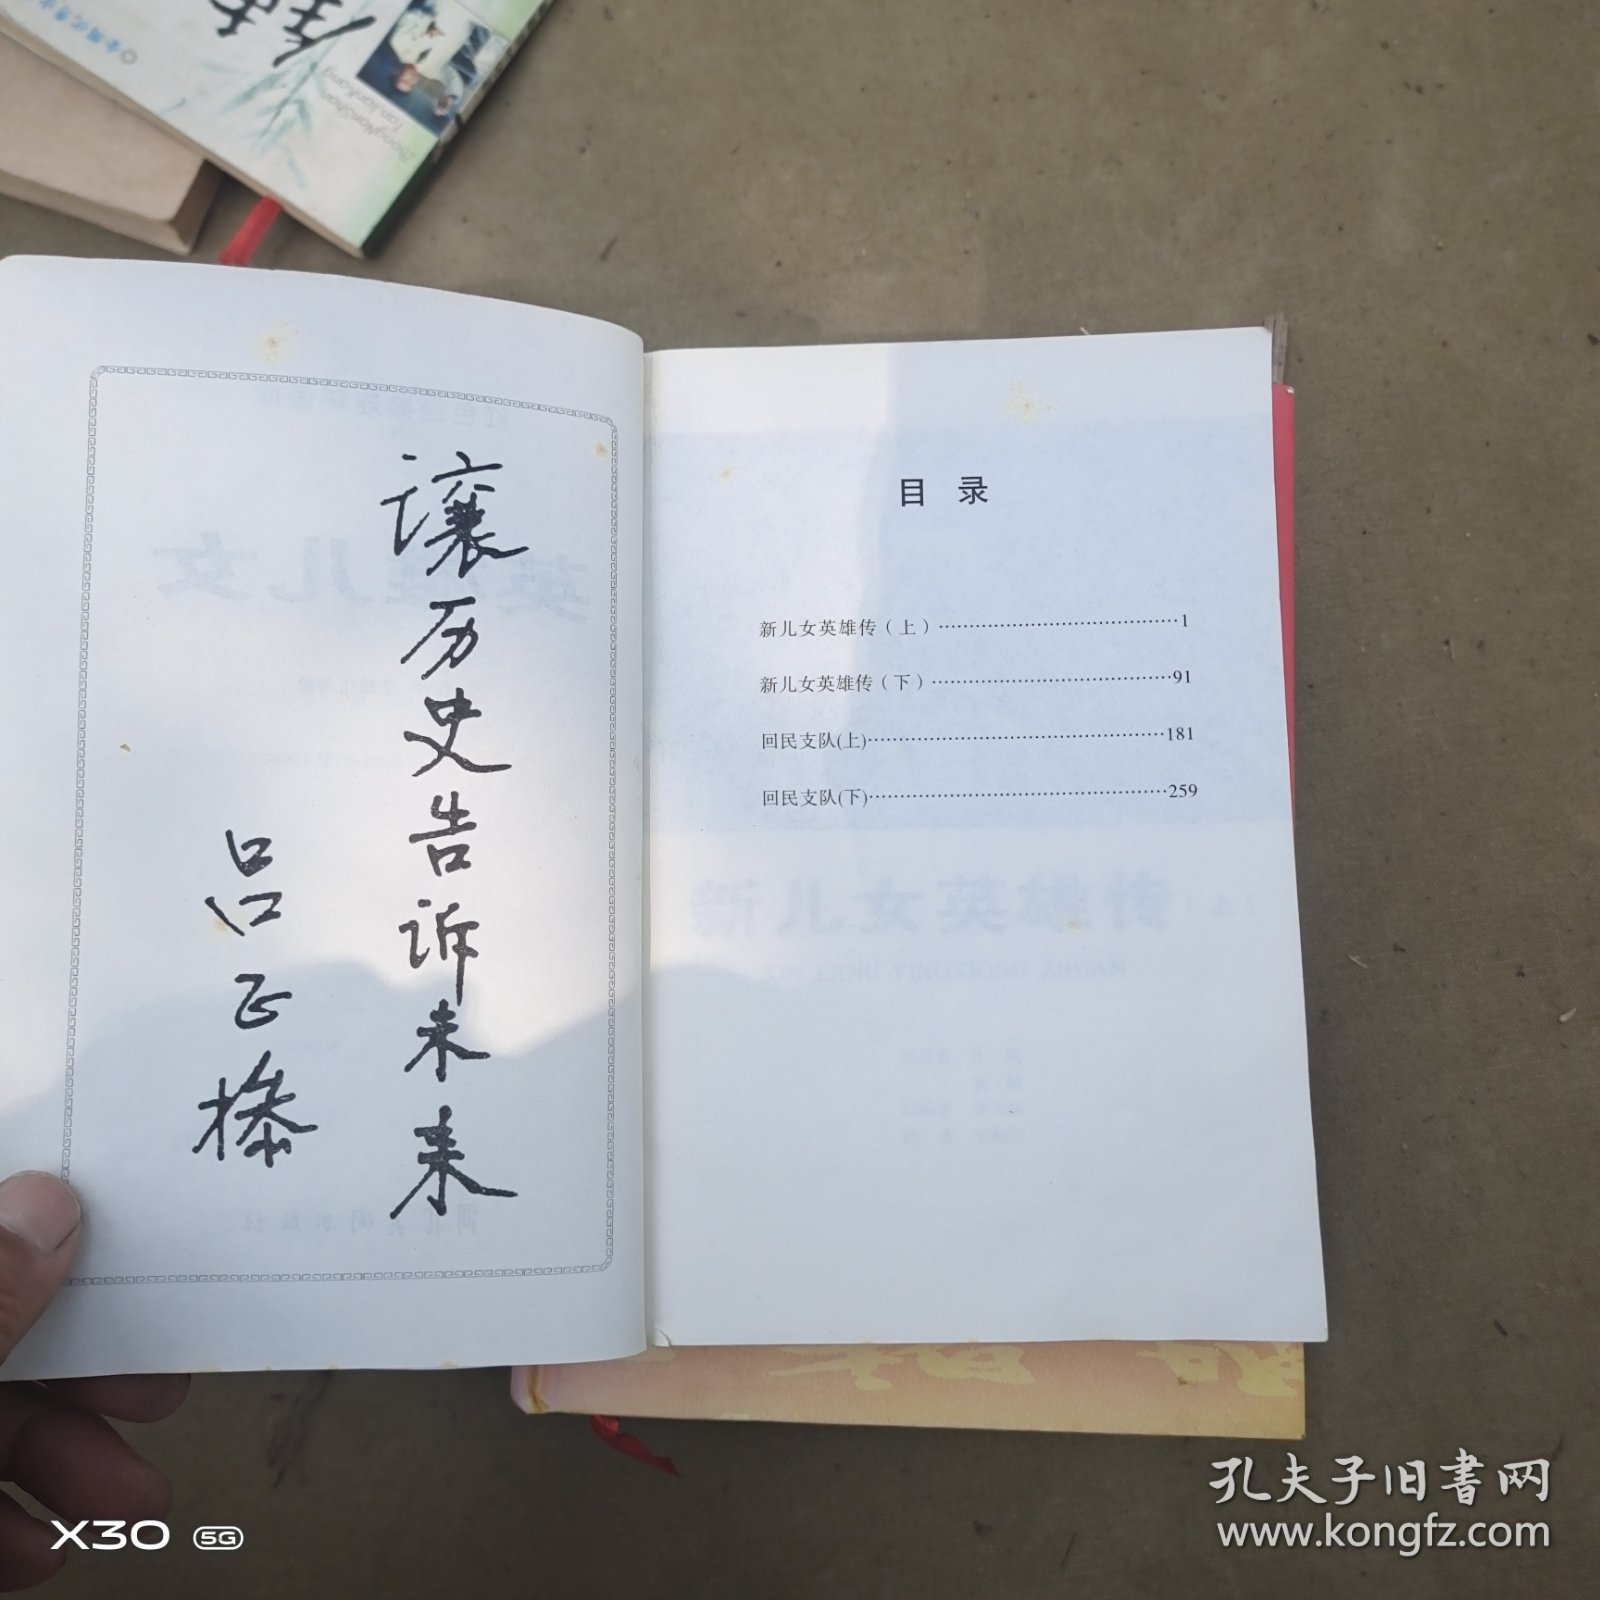 ZhongNanShan
TanJianKang
让历史告诉未来
吕正操
目 录
新儿女英雄传（上）……………………………………1
新儿女英雄传（下）……………………………………91
回民支队(上)……………………………………………181
回民支队(下)……………………………………………259
新儿女英雄传
孔夫子旧书网
www.kongfz.com
X30 5G